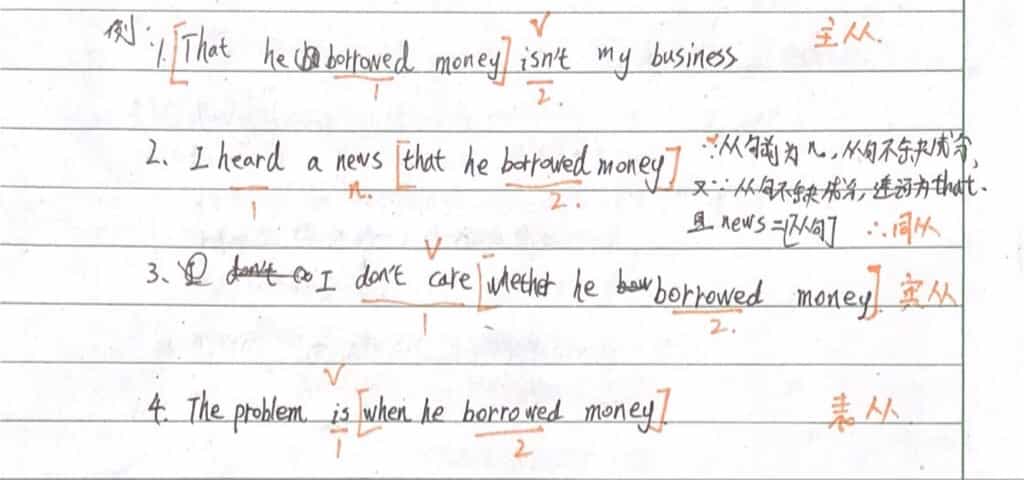 例:
1. [That he borrowed money] isn't my business 主从.
V
1 2.
2、I heard a news [that he borrowed money] ∵从句前为n.,从句不缺成分,
n.
1 2.
又∵从句不缺成分,连词为that.
且 news=[从句] ∴同从
V
3、don't I don't care [whether he borrowed money]. 宾从
1 2.
V
4. The problem is [when he borrowed money]. 表从
1 2